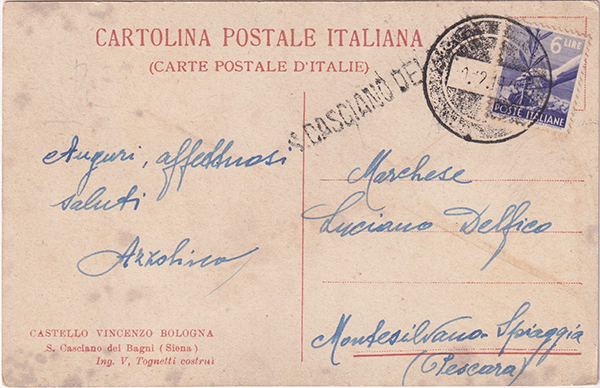 CARTOLINA POSTALE ITALIANA
(CARTE POSTALE D'ITALIE)
S. CASCIANO DEI
6 LIRE
POSTE ITALIANE
Auguri, affettuosi
saluti
Azzolino
Marchese
Luciano Delfico
Montesilvano-Spiaggia
(Pescara)
CASTELLO VINCENZO BOLOGNA
S. Casciano dei Bagni (Siena)
Ing. V, Tognetti costruì